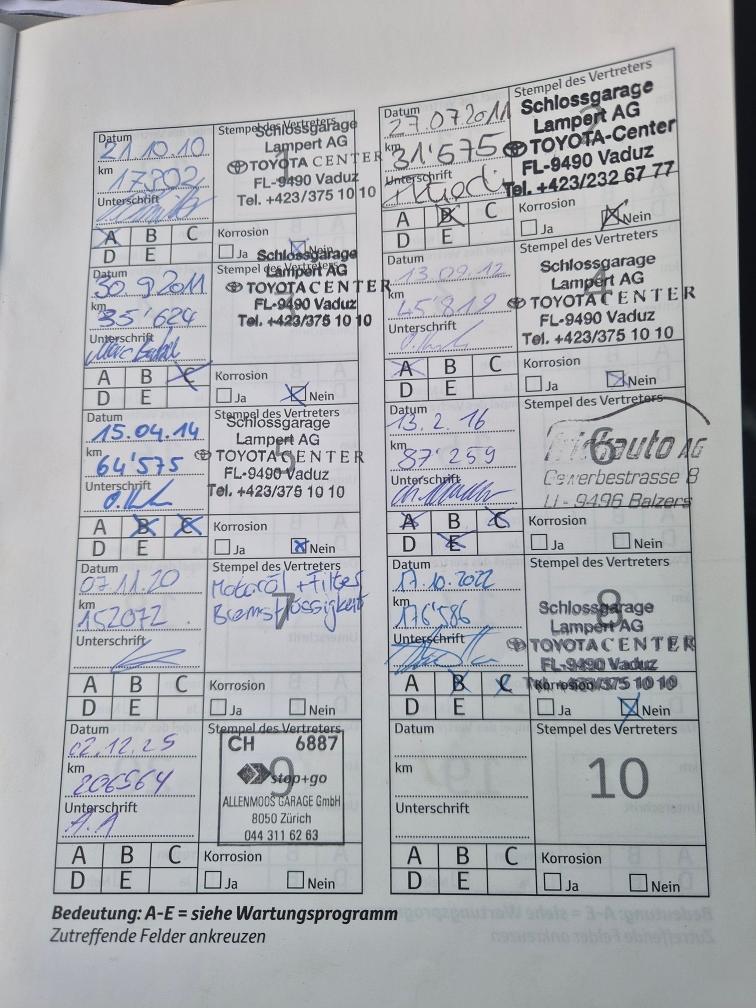 Datum
21.10.10
km
17802
Unterschrift
Stempel des Vertreters
Schlossgarage
Lampert AG
TOYOTA CENTER
FL-9490 Vaduz
Tel. +423/375 10 10
1
A B C
D E
Korrosion
Ja Nein
Datum
27.07.2011
km
31'575
Unterschrift
Stempel des Vertreters
Schlossgarage
Lampert AG
TOYOTA-Center
FL-9490 Vaduz
Tel. +423/232 67 77
A B C
D E
Korrosion
Ja Nein
Datum
30.9.2011
km
35'624
Unterschrift
Stempel des Vertreters
Schlossgarage
Lampert AG
TOYOTA CENTER
FL-9490 Vaduz
Tel. +423/375 10 10
A B C
D E
Korrosion
Ja Nein
Datum
13.09.12
km
45'819
Unterschrift
Stempel des Vertreters
Schlossgarage
Lampert AG
TOYOTA CENTER
FL-9490 Vaduz
Tel. +423/375 10 10
4
A B C
D E
Korrosion
Ja Nein
Datum
15.04.14
km
64'575
Unterschrift
Stempel des Vertreters
Schlossgarage
Lampert AG
TOYOTA CENTER
FL-9490 Vaduz
Tel. +423/375 10 10
5
A B C
D E
Korrosion
Ja Nein
Datum
13.2.16
km
87'259
Unterschrift
Stempel des Vertreters
auto AG
Gewerbestrasse 8
LI - 9496 Balzers
6
A B C
D E
Korrosion
Ja Nein
Datum
07.11.20
km
152072
Unterschrift
Stempel des Vertreters
Motoröl + Filter
Bremsflüssigkeit
7
A B C
D E
Korrosion
Ja Nein
Datum
17.10.2022
km
176'586
Unterschrift
Stempel des Vertreters
Schlossgarage
Lampert AG
TOYOTA CENTER
FL-9490 Vaduz
Tel. +423/375 10 10
8
A B C
D E
Korrosion
Ja Nein
Datum
02.12.25
km
206564
Unterschrift
A.A
Stempel des Vertreters
CH 6887
stop+go
ALLENMOOS GARAGE GmbH
8050 Zürich
044 311 62 63
9
A B C
D E
Korrosion
Ja Nein
Datum
km
Unterschrift
Stempel des Vertreters
10
A B C
D E
Korrosion
Ja Nein
Bedeutung: A-E = siehe Wartungsprogramm
Zutreffende Felder ankreuzen